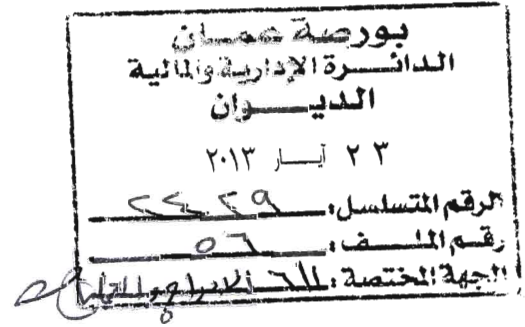 بورصة عمان
الدائرة الإدارية والمالية
الديوان
٢٣ أيار ٢٠١٣
الرقم المتسلسل: ٢٤٢٩
رقم الملف: ٥٦
الجهة المختصة: